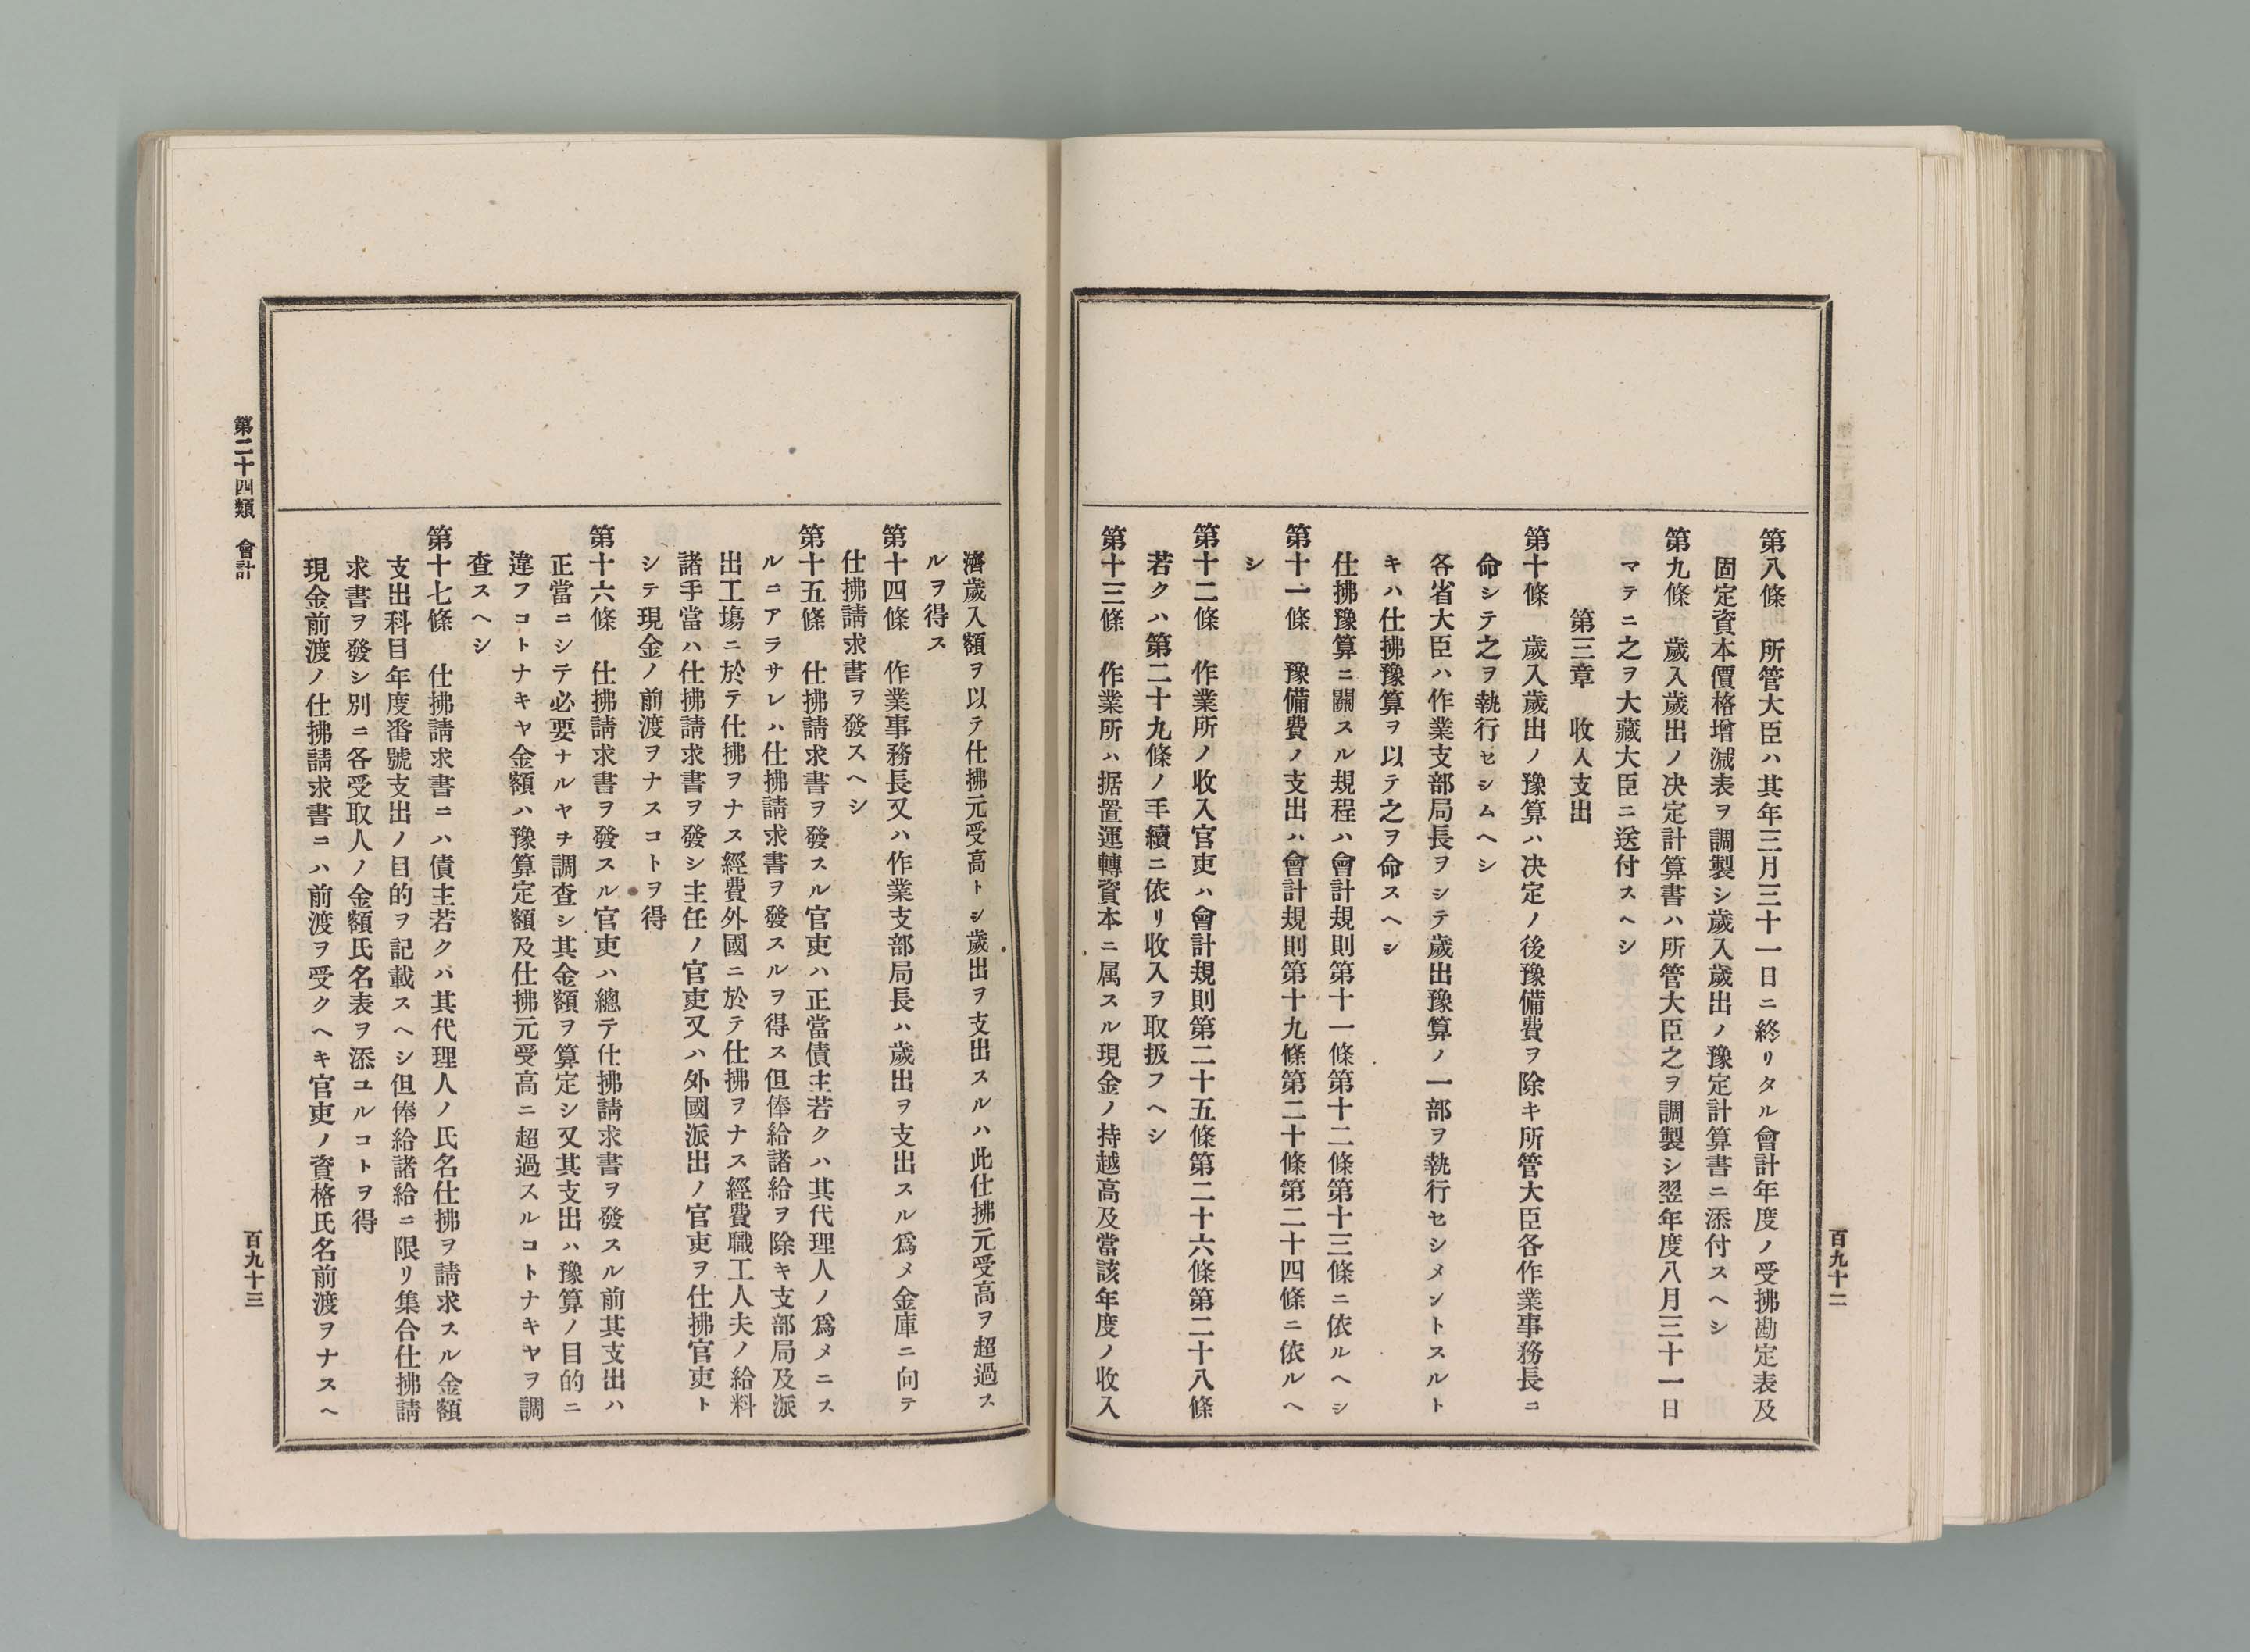 第八條　所管大臣ハ其年三月三十一日ニ終リタル會計年度ノ受拂勘定表及
固定資本價格增減表ヲ調製シ歲入歲出ノ豫定計算書ニ添付スヘシ
第九條　歲入歲出ノ决定計算書ハ所管大臣之ヲ調製シ翌年度八月三十一日
マテニ之ヲ大藏大臣ニ送付スヘシ
第三章　收入支出
第十條　歲入歲出ノ豫算ハ决定ノ後豫備費ヲ除キ所管大臣各作業事務長ニ
命シテ之ヲ執行セシムヘシ
各省大臣ハ作業支部局長ヲシテ歲出豫算ノ一部ヲ執行セシメントスルト
キハ仕拂豫算ヲ以テ之ヲ命スヘシ
仕拂豫算ニ關スル規程ハ會計規則第十一條第十二條第十三條ニ依ルヘシ
第十一條　豫備費ノ支出ハ會計規則第十九條第二十條第二十四條ニ依ルヘ
シ
第十二條　作業所ノ收入官吏ハ會計規則第二十五條第二十六條第二十八條
若クハ第二十九條ノ手續ニ依リ收入ヲ取扱フヘシ
第十三條　作業所ハ据置運轉資本ニ属スル現金ノ持越高及當該年度ノ收入
百九十二
濟歲入額ヲ以テ仕拂元受高トシ歲出ヲ支出スルハ此仕拂元受高ヲ超過ス
ルヲ得ス
第十四條　作業事務長又ハ作業支部局長ハ歲出ヲ支出スル爲メ金庫ニ向テ
仕拂請求書ヲ發スヘシ
第十五條　仕拂請求書ヲ發スル官吏ハ正當債主若クハ其代理人ノ爲メニス
ルニアラサレハ仕拂請求書ヲ發スルヲ得ス但俸給諸給ヲ除キ支部局及派
出工塲ニ於テ仕拂ヲナス經費外國ニ於テ仕拂ヲナス經費職工人夫ノ給料
諸手當ハ仕拂請求書ヲ發シ主任ノ官吏又ハ外國派出ノ官吏ヲ仕拂官吏ト
シテ現金ノ前渡ヲナスコトヲ得
第十六條　仕拂請求書ヲ發スル官吏ハ總テ仕拂請求書ヲ發スル前其支出ハ
正當ニシテ必要ナルヤヲ調査シ其金額ヲ算定シ又其支出ハ豫算ノ目的ニ
違フコトナキヤ金額ハ豫算定額及仕拂元受高ニ超過スルコトナキヤヲ調
查スヘシ
第十七條　仕拂請求書ニハ債主若クハ其代理人ノ氏名仕拂ヲ請求スル金額
支出科目年度番號支出ノ目的ヲ記載スヘシ但俸給諸給ニ限リ集合仕拂請
求書ヲ發シ別ニ各受取人ノ金額氏名表ヲ添ユルコトヲ得
現金前渡ノ仕拂請求書ニハ前渡ヲ受クヘキ官吏ノ資格氏名前渡ヲナスヘ
第二十四類　會計
百九十三